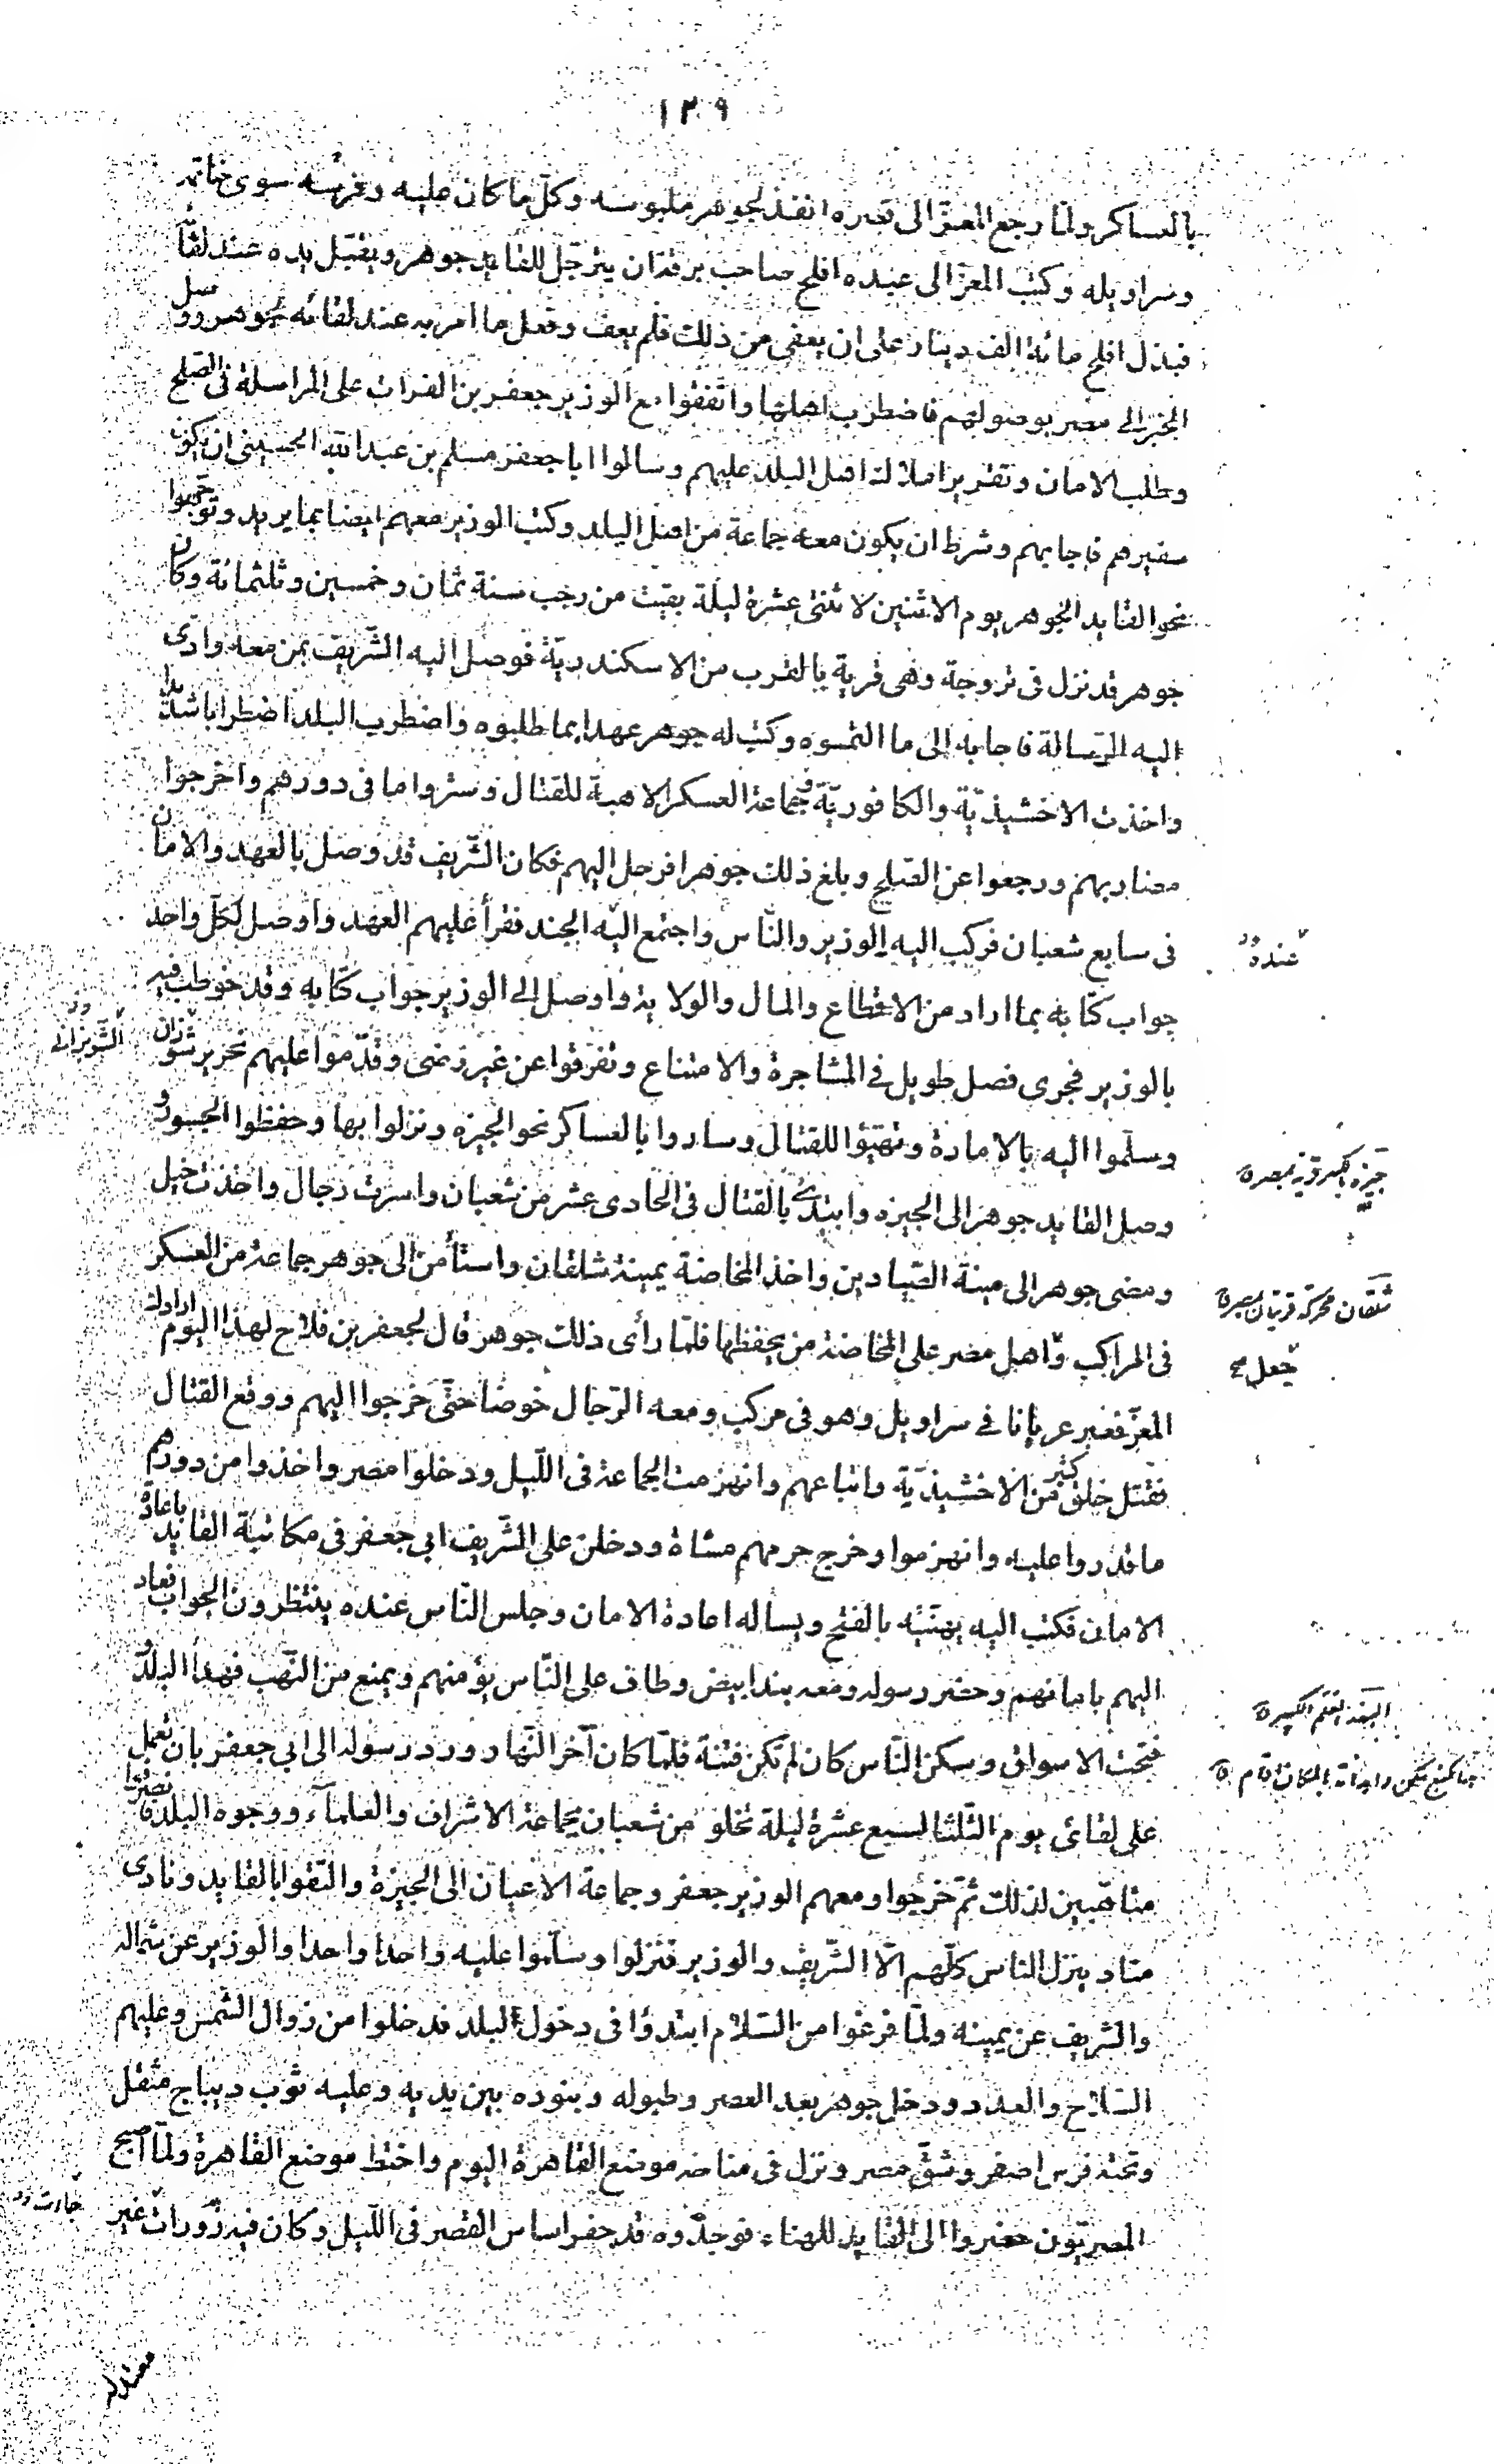 ١٣٩
بالعساكر ولمّا رجع المعزّ الى قصره انفذ لجوهر ملبوسه وكلّ ما كان عليه وفرسه سوى خاتمه
وسراويله وكتب المعزّ الى عبده افلح صاحب برقة ان يترجّل للقايد جوهر ويقبّل يده عند لقا
فبذل افلح مائة الف دينار على ان يعفى من ذلك فلم يعف وفعل ما امر به عند لقائه لجوهر ووصل
الخبر الى مصر بوصولهم فاضطرب اهلها واتّفقوا مع الوزير جعفر بن الفرات على المراسلة فى الصّلح
وطلب الامان وتقرير املاك اهل البلد عليهم وسالوا ابا جعفر مسلم بن عبد الله الحسينى ان يكون
سفيرهم فاجابهم وشرط ان يكون معه جماعة من اهل البلد وكتب الوزير معهم ايضا بما يريد وتوجّهوا
نحو القايد الجوهر يوم الاثنين لاثنتى عشرة ليلة بقيت من رجب سنة ثمان وخمسين وثلثمائة وكان
جوهر قد نزل فى تروجة وهى قرية بالقرب من الاسكندريّة فوصل اليه الشّريف بمن معه وادّى
اليه الرّسالة فاجابه الى ما التمسوه وكتب له جوهر عهدا بما طلبوه واضطرب البلد اضطرابا شديدا
واخذت الاخشيذيّة والكافوريّة وجماعة العسكر الاهبة للقتال وستروا ما فى دورهم واخرجوا
مضاربهم ورجعوا عن الصّلح وبلغ ذلك جوهرا فرحل اليهم فكان الشّريف قد وصل بالعهد والامان
فى سابع شعبان فركب اليه الوزير والنّاس واجتمع اليه الجند فقرأ عليهم العهد واوصل لكلّ واحد
جواب كتابه بما اراد من الاقطاع والمال والولاية واوصل الى الوزير جواب كتابه وقد خوطب فيه
بالوزير فجرى فصل طويل فى المشاجرة والامتناع وتفرّقوا عن غير رضى وقدّموا عليهم نحرير شوزان
وسلّموا اليه بالامارة وتهيّؤا للقتال وساروا بالعساكر نحو الجيزه ونزلوا بها وحفظوا الجسور و
وصل القايد جوهر الى الجيزه وابتدئ بالقتال فى الحادى عشر من شعبان واسرت رجال واخذت خيل
ومضى جوهر الى مينة الصّيادين واخذ المخاضة بمينة شلقان واستأمن الى جوهر جماعة من العسكر
فى المراكب واهل مصر على المخاضة من يحفظها فلمّا رأى ذلك جوهر قال لجعفر بن فلاح لهذا اليوم ارادك
المعزّ فعبر عريانا فى سراويل وهو فى مركب ومعه الرّجال خوضا حتّى خرجوا اليهم ووقع القتال
فقتل خلق كثير من الاخشيذيّة واتباعهم وانهزمت الجماعة فى اللّيل ودخلوا مصر واخذوا من دورهم
ما قدروا عليه وانهزموا وخرج حرمهم مشاة ودخلن على الشّريف ابى جعفر فى مكاتبة القايد باعادة
الامان فكتب اليه يهنّيه بالفتح ويساله اعادة الامان وجلس النّاس عنده ينتظرون الجواب فعاد
اليهم بامانهم وحضر رسوله ومعه بند ابيض وطاف على النّاس يؤمنهم ويمنع من النّهب فهدأ البلد و
فتحت الاسواق وسكن النّاس كان لم تكن فتنة فلمّا كان آخر النّهار ورد رسوله الى ابى جعفر بان تعمل
على لقائى يوم الثّلثا لسبع عشرة ليلة تخلو من شعبان بجماعة الاشراف والعلماء ووجوه البلد فانصرفوا
متاهّبين لذلك ثمّ خرجوا ومعهم الوزير جعفر وجماعة الاعيان الى الجيزة والتقوا بالقايد ونادى
مناد ينزل الناس كلّهم الّا الشّريف والوزير فنزلوا وسلّموا عليه واحدا واحدا والوزير عن شماله
والشريف عن يمينه ولمّا فرغوا من السّلام ابتدؤا فى دخول البلد فدخلوا من زوال الشمس وعليهم
السّلاح والعدد ودخل جوهر بعد العصر وطبوله وبنوده بين يديه وعليه ثوب ديباج مثقل
وتحته فرس اصفر وشقّ مصر ونزل فى مناخه موضع القاهرة اليوم واختط موضع القاهرة ولمّا اصبح
المصريّون حضروا الى القايد للهناء فوجدوه قد حفر اساس القصر فى اللّيل وكان فيه زورات غير
عنده
جيزة بالكسر قرية بمصر
شلقان محركة قريتان بمصر
جعل صح
البند العلم الكبير
معتدلة